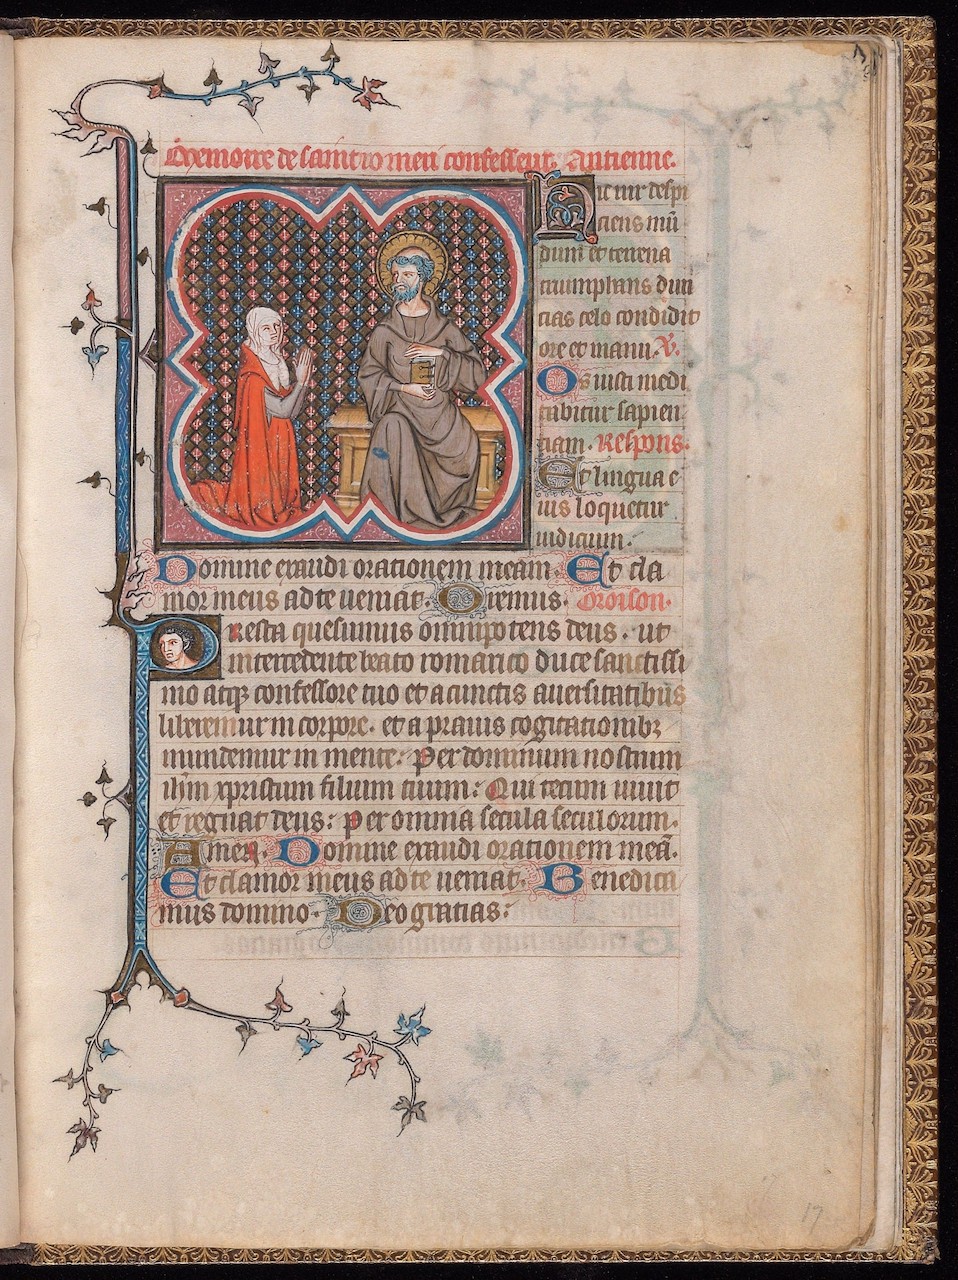 Memoire de saint romeri confesseur. Antienne.
Hic vir despi
ciens mū
dum et terrena
triumphans diui
cias celo condidit
ore et manu. V.
Os iusti medi
tabitur sapien
ciam. Respons.
Et lingua e
ius loquetur
iudicium.
Domine exaudi orationem meam. Et cla
mor meus ad te ueniat. Oremus. Oroison.
Presta quesumus omnipotens deus. ut
intercedente beato romarico duce sanctissi
mo atqȝ confessore tuo et a cunctis aduersitatibus
liberemur in corpore. et a prauis cogitationibȝ
mundemur in mente. Per dominum nostrum
ihm xpristum filium tuum: Qui tecum uiuit
et regnat deus: per omnia secula seculorum.
Amen. Domine exaudi orationem meā.
Et clamor meus ad te ueniat. Benedica
mus domino. Deo gratias:
17